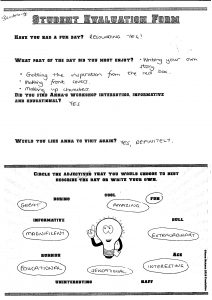 STUDENT EVALUATION FORM
HAVE YOU HAD A FUN DAY? RESOUNDING YES!
WHAT PART OF THE DAY DID YOU MOST ENJOY? • Writing your own
story
• Getting the inspiration from the red box.
• Making front covers
• Making up characters
DID YOU FIND ANNA'S WORKSHOP INTERESTING, INFORMATIVE
AND EDUCATIONAL?
YES
WOULD YOU LIKE ANNA TO VISIT AGAIN? YES, DEFINITELY.
CIRCLE THE ADJECTIVES THAT YOU WOULD CHOOSE TO BEST
DESCRIBE THE DAY OR WRITE YOUR OWN.
BORING
COOL
FUN
GREAT
AMAZING
INFORMATIVE
DULL
MAGNIFICENT
EXTRAORDINARY
RUBBISH
ACE
EDUCATIONAL
SENSATIONAL
INTERESTING
UNINTERESTING
NAFF